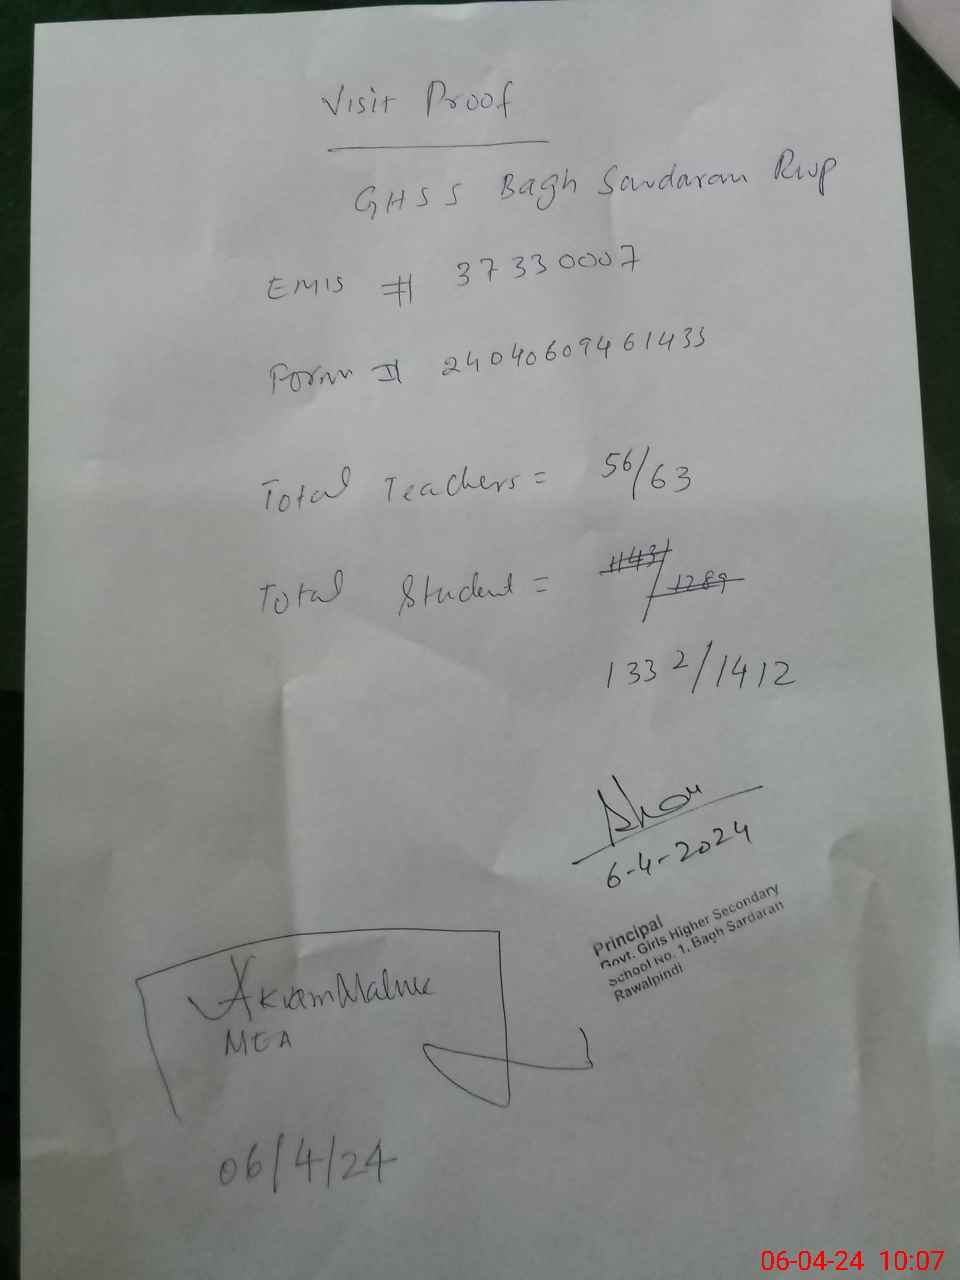 Visit Proof
GHSS Bagh Sardaran Rwp
EMIS # 37330007
Form # 24040609461433
Total Teachers = 56/63
Total Student = 1143/1289
1332/1412
6-4-2024
Principal
Govt. Girls Higher Secondary
School No. 1, Bagh Sardaran
Rawalpindi
Akram
MEA
06/4/24
06-04-24 10:07